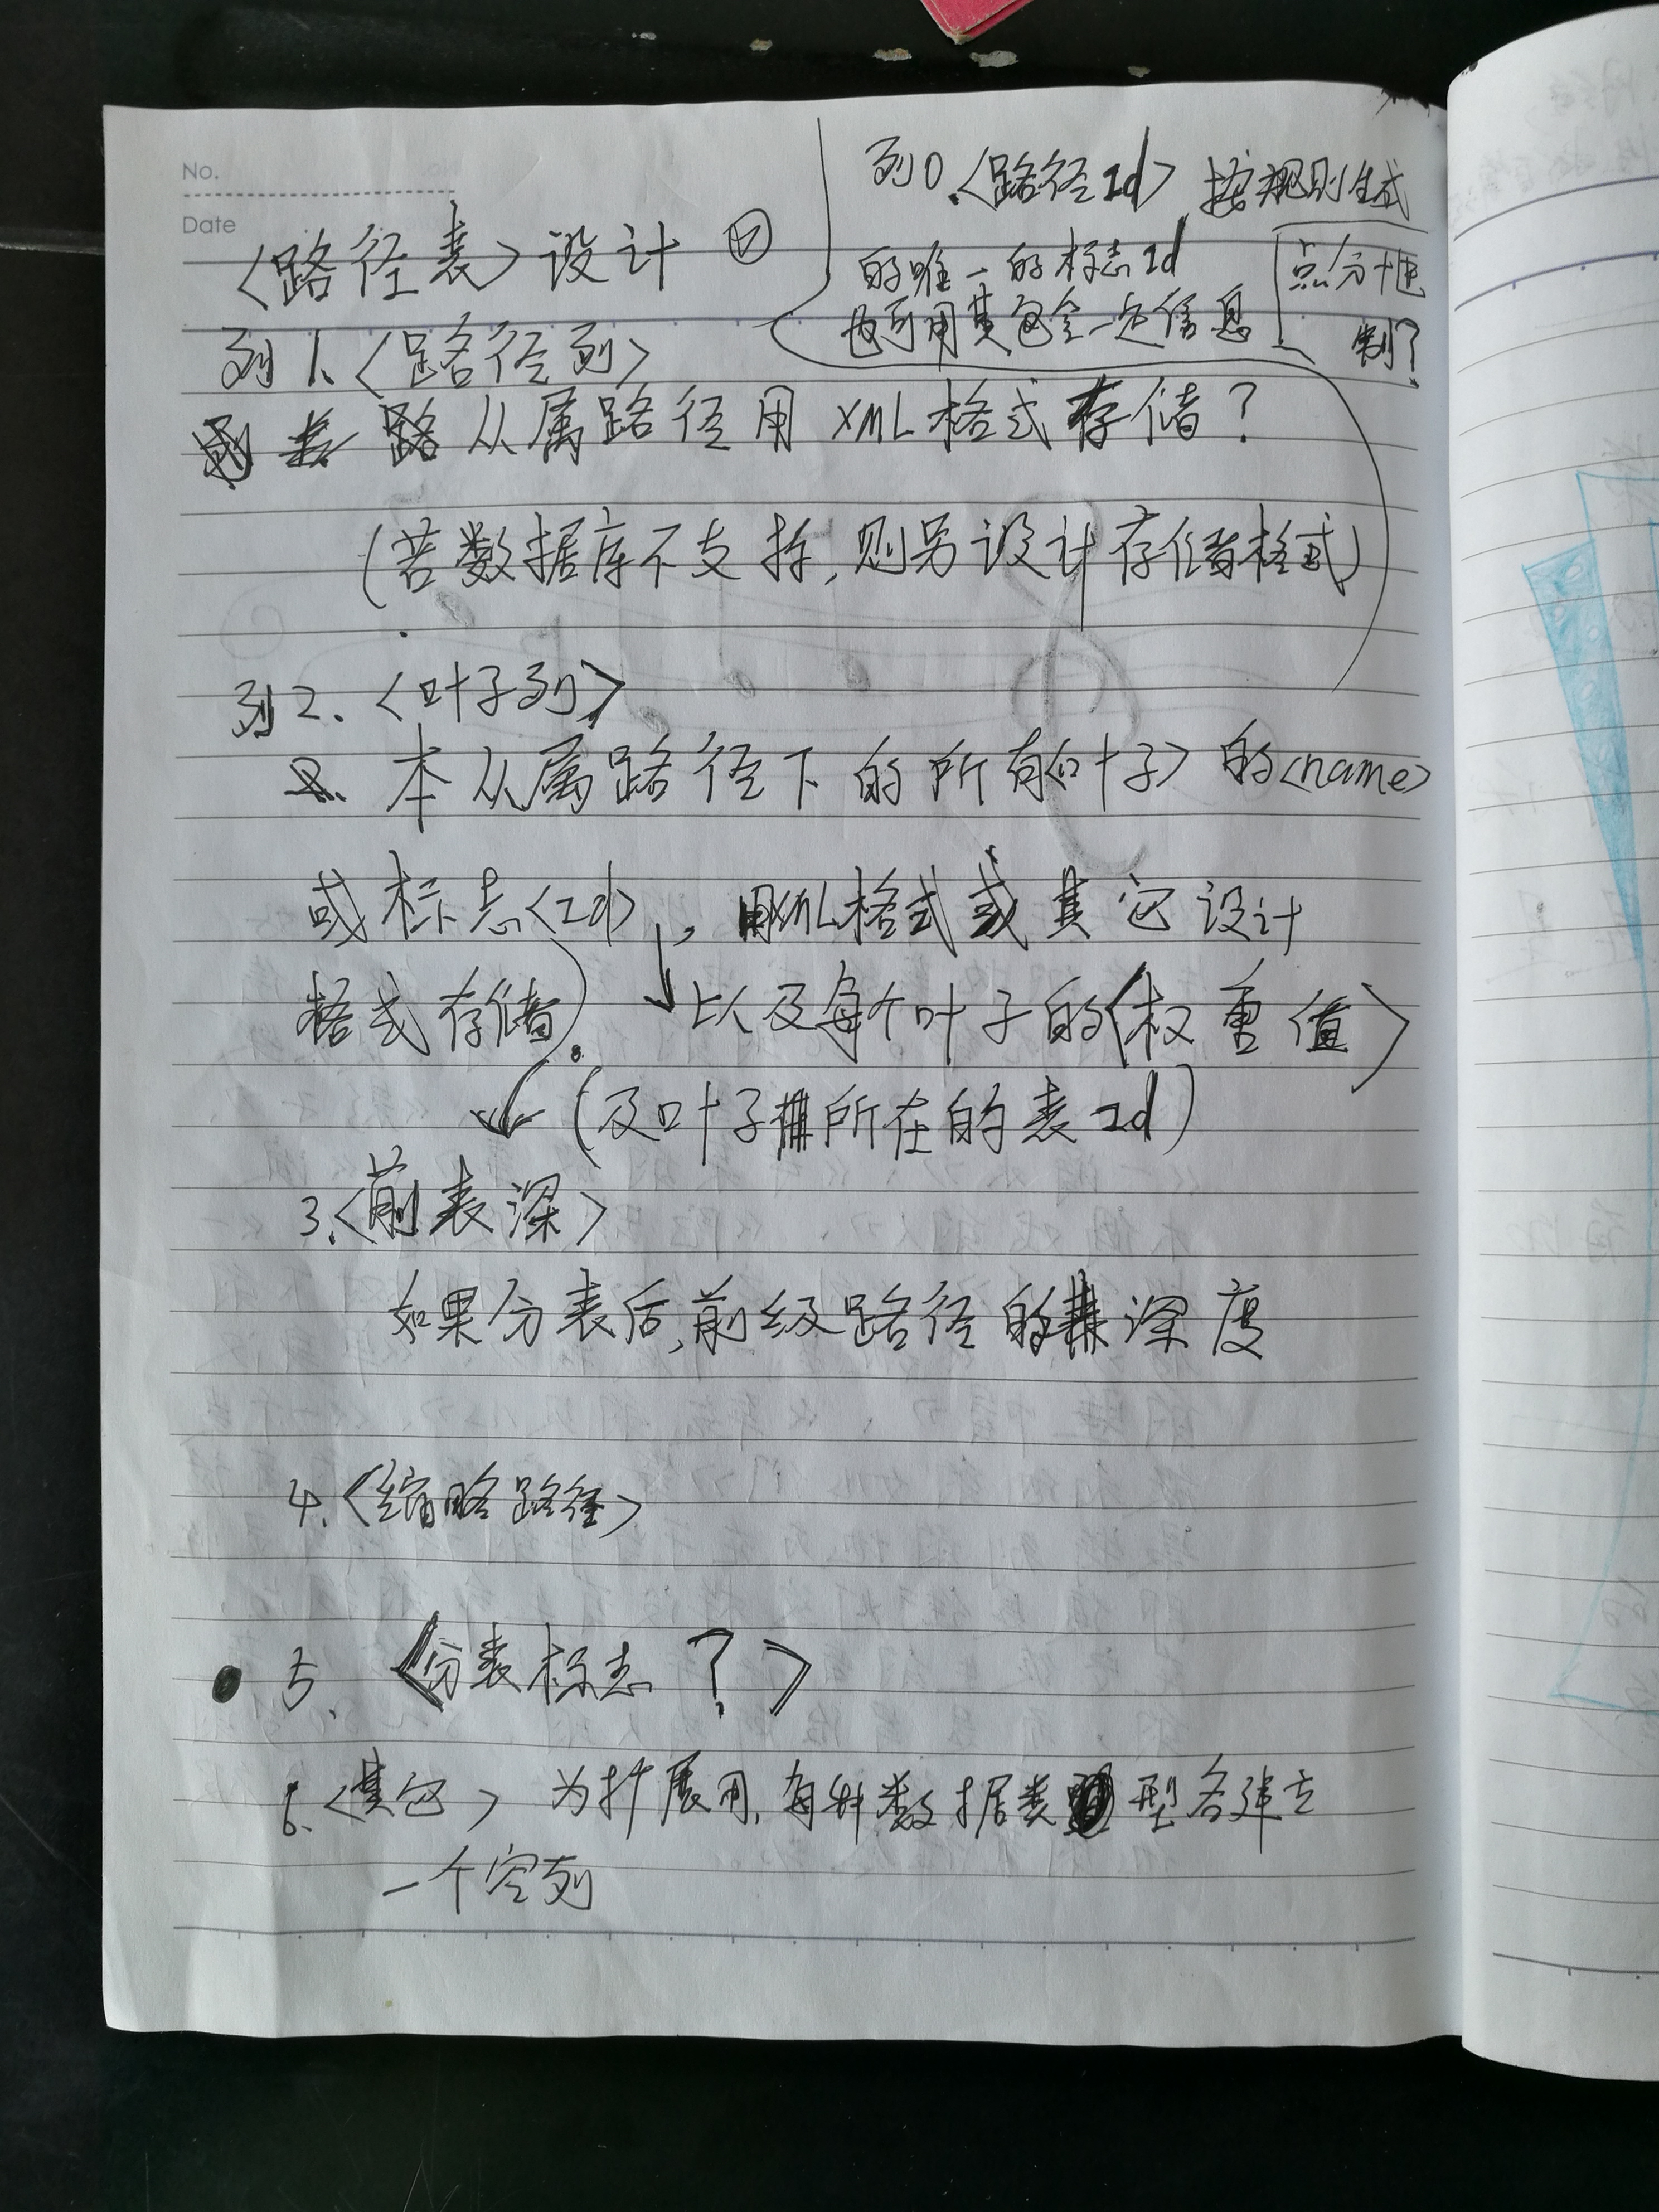 No.
Date
列0.<路径Id> 按规则生成
的唯一的标志Id
也可用其包含一定信息
点分十进
制?
<路径表>设计
列1、<路径列>
路从属路径用XML格式存储?
(若数据库不支持,则另设计存储格式)
列2、<叶子列>
本从属路径下的所有<叶子>的<name>
或标志<Id>,用XML格式或其它设计
格式存储. 以及每个叶子的<权重值>
(及叶子所在的表Id)
3、<前表深>
如果分表后,前级路径的深度
4、<缩略路径>
5、<分表标志?>
6、<其它> 为扩展用,每种数据类型各建立
一个空列